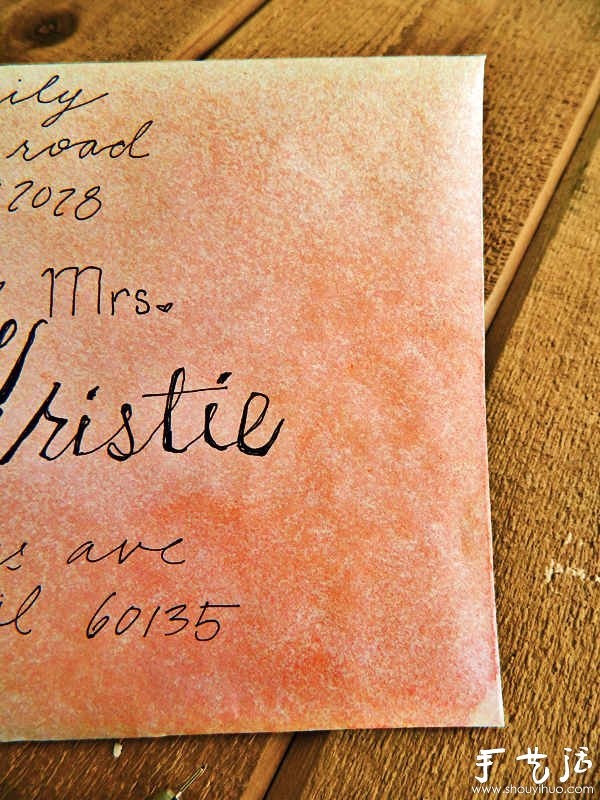 ily
road
2028
Mrs.
ristie
ave
il 60135
手艺活
www.shouyihuo.com